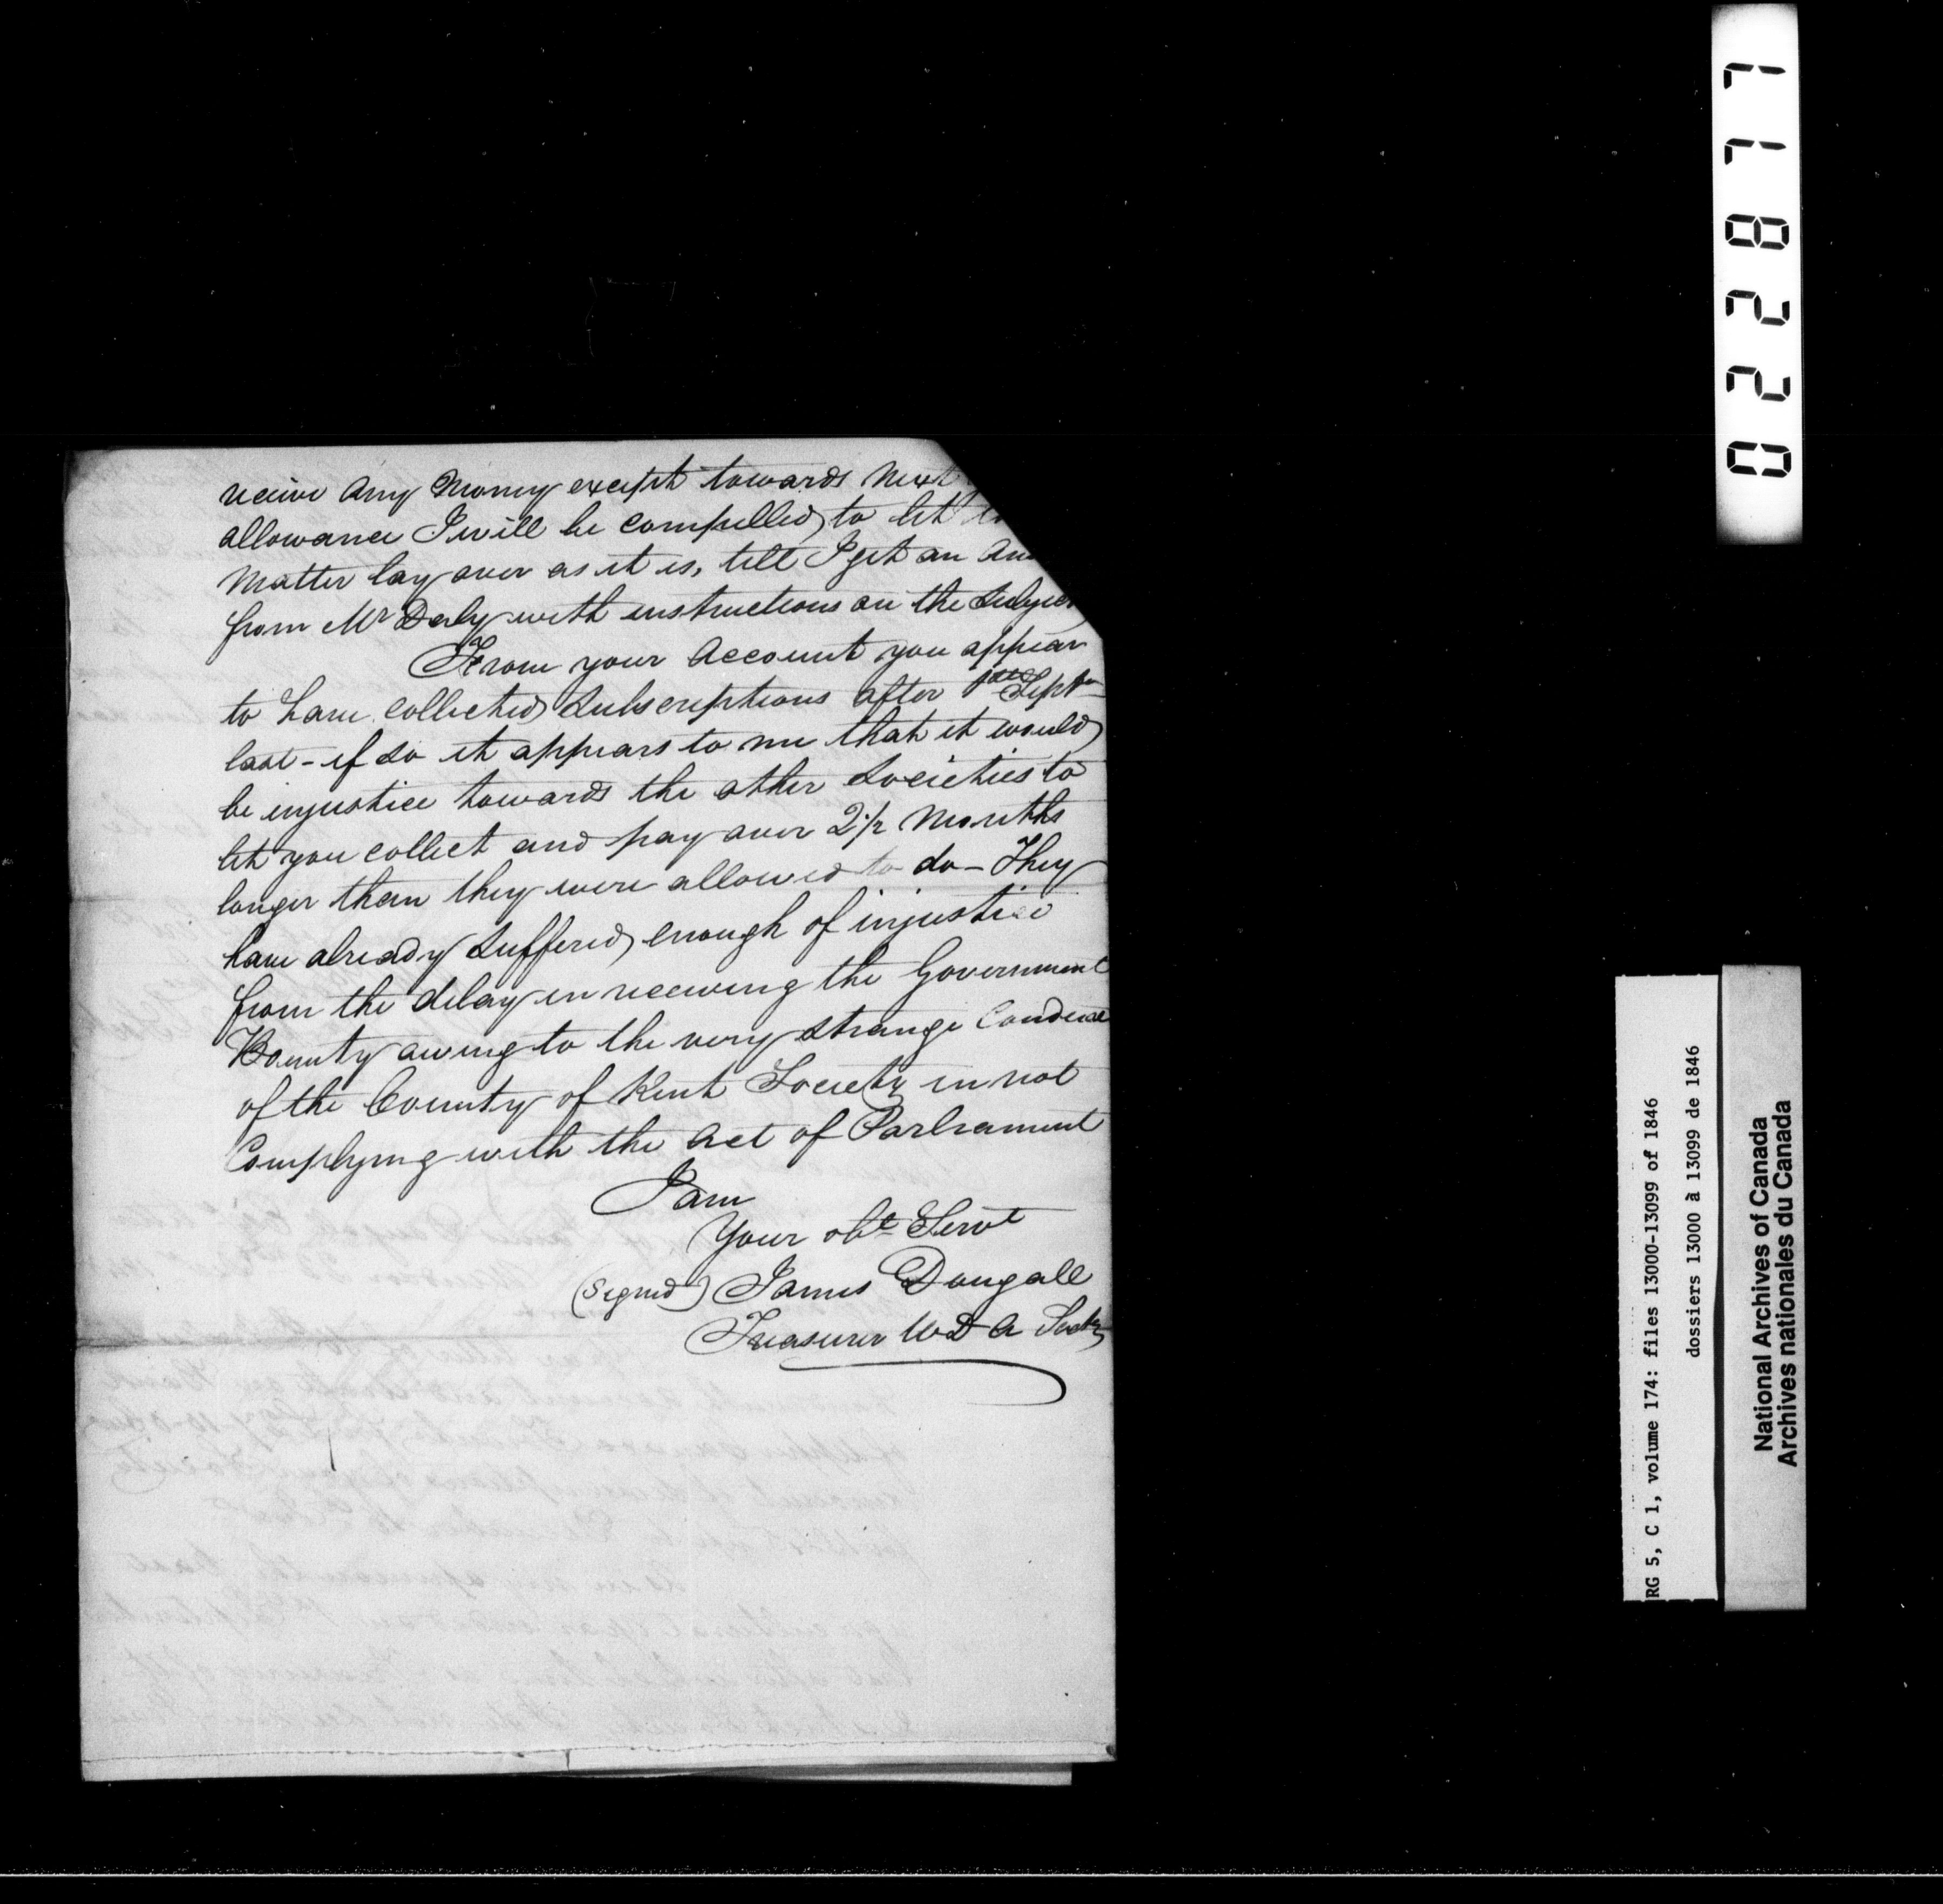 receive any money except towards next
allowance I will be compelled to let
matter lay over as it is, till I get an
from Mr Daly with instructions on the Subject
From your account you appear
to have collected Subscriptions after Septr
last - if so it appears to me that it would
be injustice towards the other Societies to
let you collect and pay over 2 1/2 months
longer than they were allowed to do - They
have already suffered enough of injustice
from the delay in receiving the Government
Bounty owing to the very strange Conduct
of the County of Kent Society in not
Complying with the Act of Parliament
I am
Your obt Servt
(Signed) James Dougall
Treasurer W D A Socty
022877
RG 5, C 1, volume 174: files 13000-13099 of 1846
dossiers 13000 à 13099 de 1846
National Archives of Canada
Archives nationales du Canada